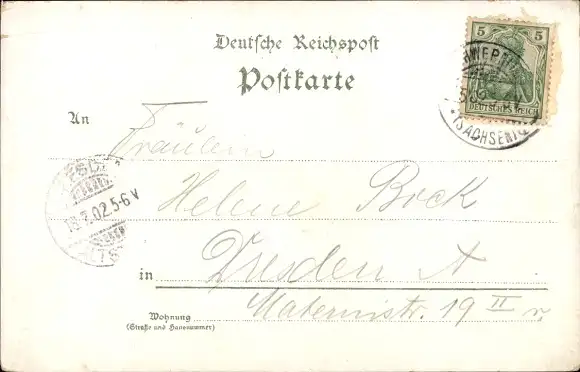 Deutsche Reichspost
Postkarte
5 5
DEUTSCHES REICH
(SACHSEN)
An
Fräulein
Helene Bock
18.7.02.5-6 V
in Dresden A
Maternistr. 19 II r.
Wohnung
(Straße und Hausnummer)